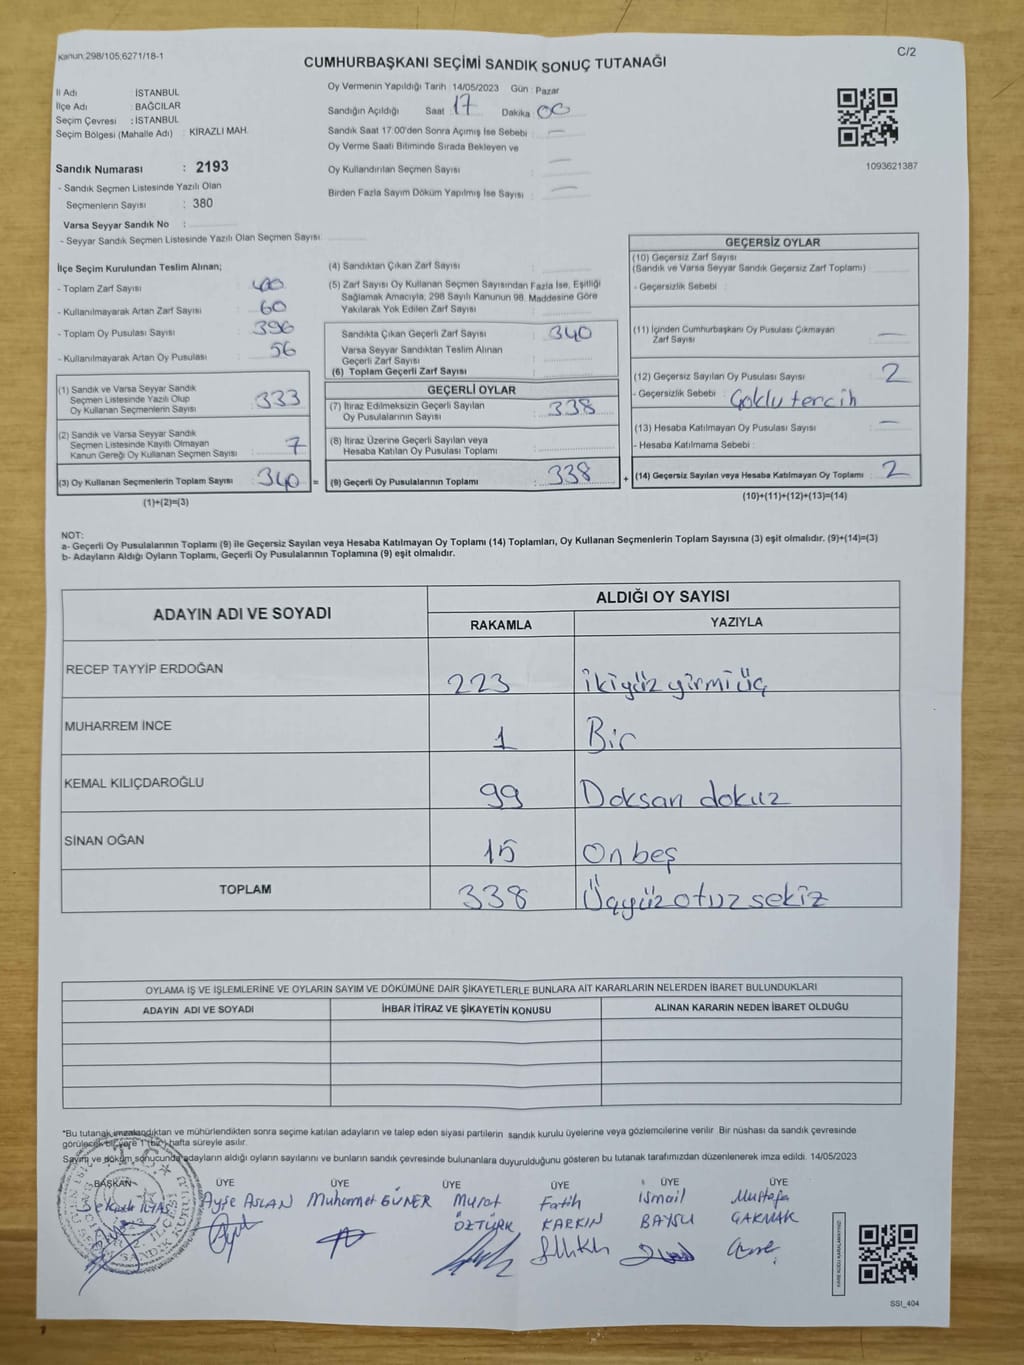 Kanun:298/105;6271/18-1
C/2
CUMHURBAŞKANI SEÇİMİ SANDIK SONUÇ TUTANAĞI
İl Adı : İSTANBUL
İlçe Adı : BAĞCILAR
Seçim Çevresi : İSTANBUL
Seçim Bölgesi (Mahalle Adı) : KİRAZLI MAH.
Sandık Numarası : 2193
- Sandık Seçmen Listesinde Yazılı Olan
Seçmenlerin Sayısı : 380
Varsa Seyyar Sandık No :
- Seyyar Sandık Seçmen Listesinde Yazılı Olan Seçmen Sayısı:
Oy Vermenin Yapıldığı Tarih 14/05/2023 Gün : Pazar
Sandığın Açıldığı Saat 17 Dakika 00
Sandık Saat 17:00'den Sonra Açmış İse Sebebi : —
Oy Verme Saati Bitiminde Sırada Bekleyen ve
Oy Kullandırılan Seçmen Sayısı : —
Birden Fazla Sayım Döküm Yapılmış İse Sayısı : —
1093621387
İlçe Seçim Kurulundan Teslim Alınan;
- Toplam Zarf Sayısı : 400
- Kullanılmayarak Artan Zarf Sayısı : 60
- Toplam Oy Pusulası Sayısı : 396
- Kullanılmayarak Artan Oy Pusulası : 56
(1) Sandık ve Varsa Seyyar Sandık
Seçmen Listesinde Yazılı Olup
Oy Kullanan Seçmenlerin Sayısı : 333
(2) Sandık ve Varsa Seyyar Sandık
Seçmen Listesinde Kayıtlı Olmayan
Kanun Gereği Oy Kullanan Seçmen Sayısı : 7
(3) Oy Kullanan Seçmenlerin Toplam Sayısı : 340 =
(1)+(2)=(3)
(4) Sandıktan Çıkan Zarf Sayısı :
(5) Zarf Sayısı Oy Kullanan Seçmen Sayısından Fazla İse, Eşitliği
Sağlamak Amacıyla, 298 Sayılı Kanunun 98. Maddesine Göre
Yakılarak Yok Edilen Zarf Sayısı :
Sandıkta Çıkan Geçerli Zarf Sayısı : 340
Varsa Seyyar Sandıktan Teslim Alınan
Geçerli Zarf Sayısı :
(6) Toplam Geçerli Zarf Sayısı :
GEÇERLİ OYLAR
(7) İtiraz Edilmeksizin Geçerli Sayılan
Oy Pusulalarının Sayısı : 338
(8) İtiraz Üzerine Geçerli Sayılan veya
Hesaba Katılan Oy Pusulası Toplamı :
(9) Geçerli Oy Pusulalarının Toplamı : 338 +
GEÇERSİZ OYLAR
(10) Geçersiz Zarf Sayısı
(Sandık ve Varsa Seyyar Sandık Geçersiz Zarf Toplamı) :
- Geçersizlik Sebebi :
(11) İçinden Cumhurbaşkanı Oy Pusulası Çıkmayan
Zarf Sayısı : —
(12) Geçersiz Sayılan Oy Pusulası Sayısı : 2
- Geçersizlik Sebebi : Çoklu tercih
(13) Hesaba Katılmayan Oy Pusulası Sayısı : —
- Hesaba Katılmama Sebebi :
(14) Geçersiz Sayılan veya Hesaba Katılmayan Oy Toplamı : 2
(10)+(11)+(12)+(13)=(14)
NOT:
a- Geçerli Oy Pusulalarının Toplamı (9) ile Geçersiz Sayılan veya Hesaba Katılmayan Oy Toplamı (14) Toplamları, Oy Kullanan Seçmenlerin Toplam Sayısına (3) eşit olmalıdır. (9)+(14)=(3)
b- Adayların Aldığı Oyların Toplamı, Geçerli Oy Pusulalarının Toplamına (9) eşit olmalıdır.
ADAYIN ADI VE SOYADI
ALDIĞI OY SAYISI
RAKAMLA YAZIYLA
RECEP TAYYİP ERDOĞAN 223 ikiyüz yirmi üç
MUHARREM İNCE 1 Bir
KEMAL KILIÇDAROĞLU 99 Doksan dokuz
SİNAN OĞAN 15 On beş
TOPLAM 338 Üçyüz otuz sekiz
OYLAMA İŞ VE İŞLEMLERİNE VE OYLARIN SAYIM VE DÖKÜMÜNE DAİR ŞİKAYETLERLE BUNLARA AİT KARARLARIN NELERDEN İBARET BULUNDUKLARI
ADAYIN ADI VE SOYADI İHBAR İTİRAZ VE ŞİKAYETİN KONUSU ALINAN KARARIN NEDEN İBARET OLDUĞU
*Bu tutanak imzalandıktan ve mühürlendikten sonra seçime katılan adayların ve talep eden siyasi partilerin sandık kurulu üyelerine veya gözlemcilerine verilir. Bir nüshası da sandık çevresinde
görülecek bir yere 1 (bir) hafta süreyle asılır.
Sayım ve döküm sonucunda adayların aldığı oyların sayılarını ve bunların sandık çevresinde bulunanlara duyurulduğunu gösteren bu tutanak tarafımızdan düzenlenerek imza edildi. 14/05/2023
BAŞKAN ÜYE ÜYE ÜYE ÜYE ÜYE ÜYE
Ayşe ASLAN Muhammet GÜNER Murat Fatih ismail Mustafa
ÖZTÜRK KARKIN BAYSU ÇAKMAK
SSI_404